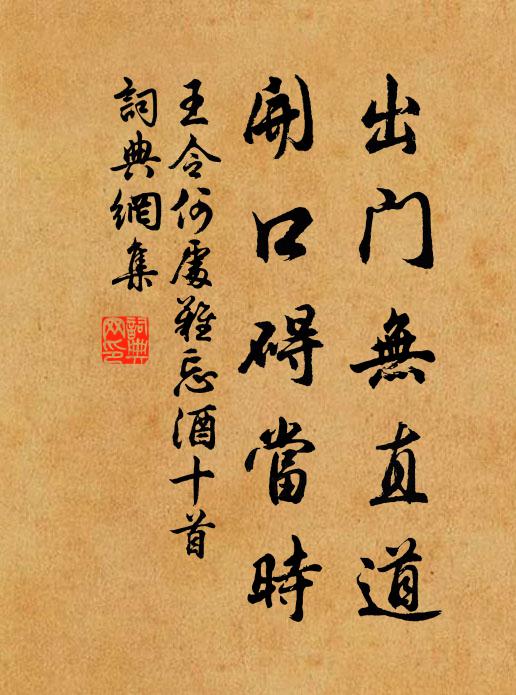 出門無直道
開口碍當時
王令何處難忘酒十首
詞典網集
詞典網印